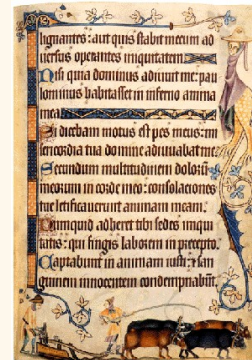 lignantes: aut quis stabit mecum ad
versus operantes iniquitatem
Nisi quia dominus adiuvit me: pau
lominus habitasset in inferno anima
mea
Si dicebam motus est pes meus: mi
sericordia tua domine adiuvabat me
Secundum multitudinem dolorum
meorum in corde meo: consolaciones
tue letificaverunt animam meam.
Numquid adheret tibi sedes iniqui
tatis: qui fingis laborem in precepto.
Captabunt in animam iusti: et san
guinem innocentem condempnabunt